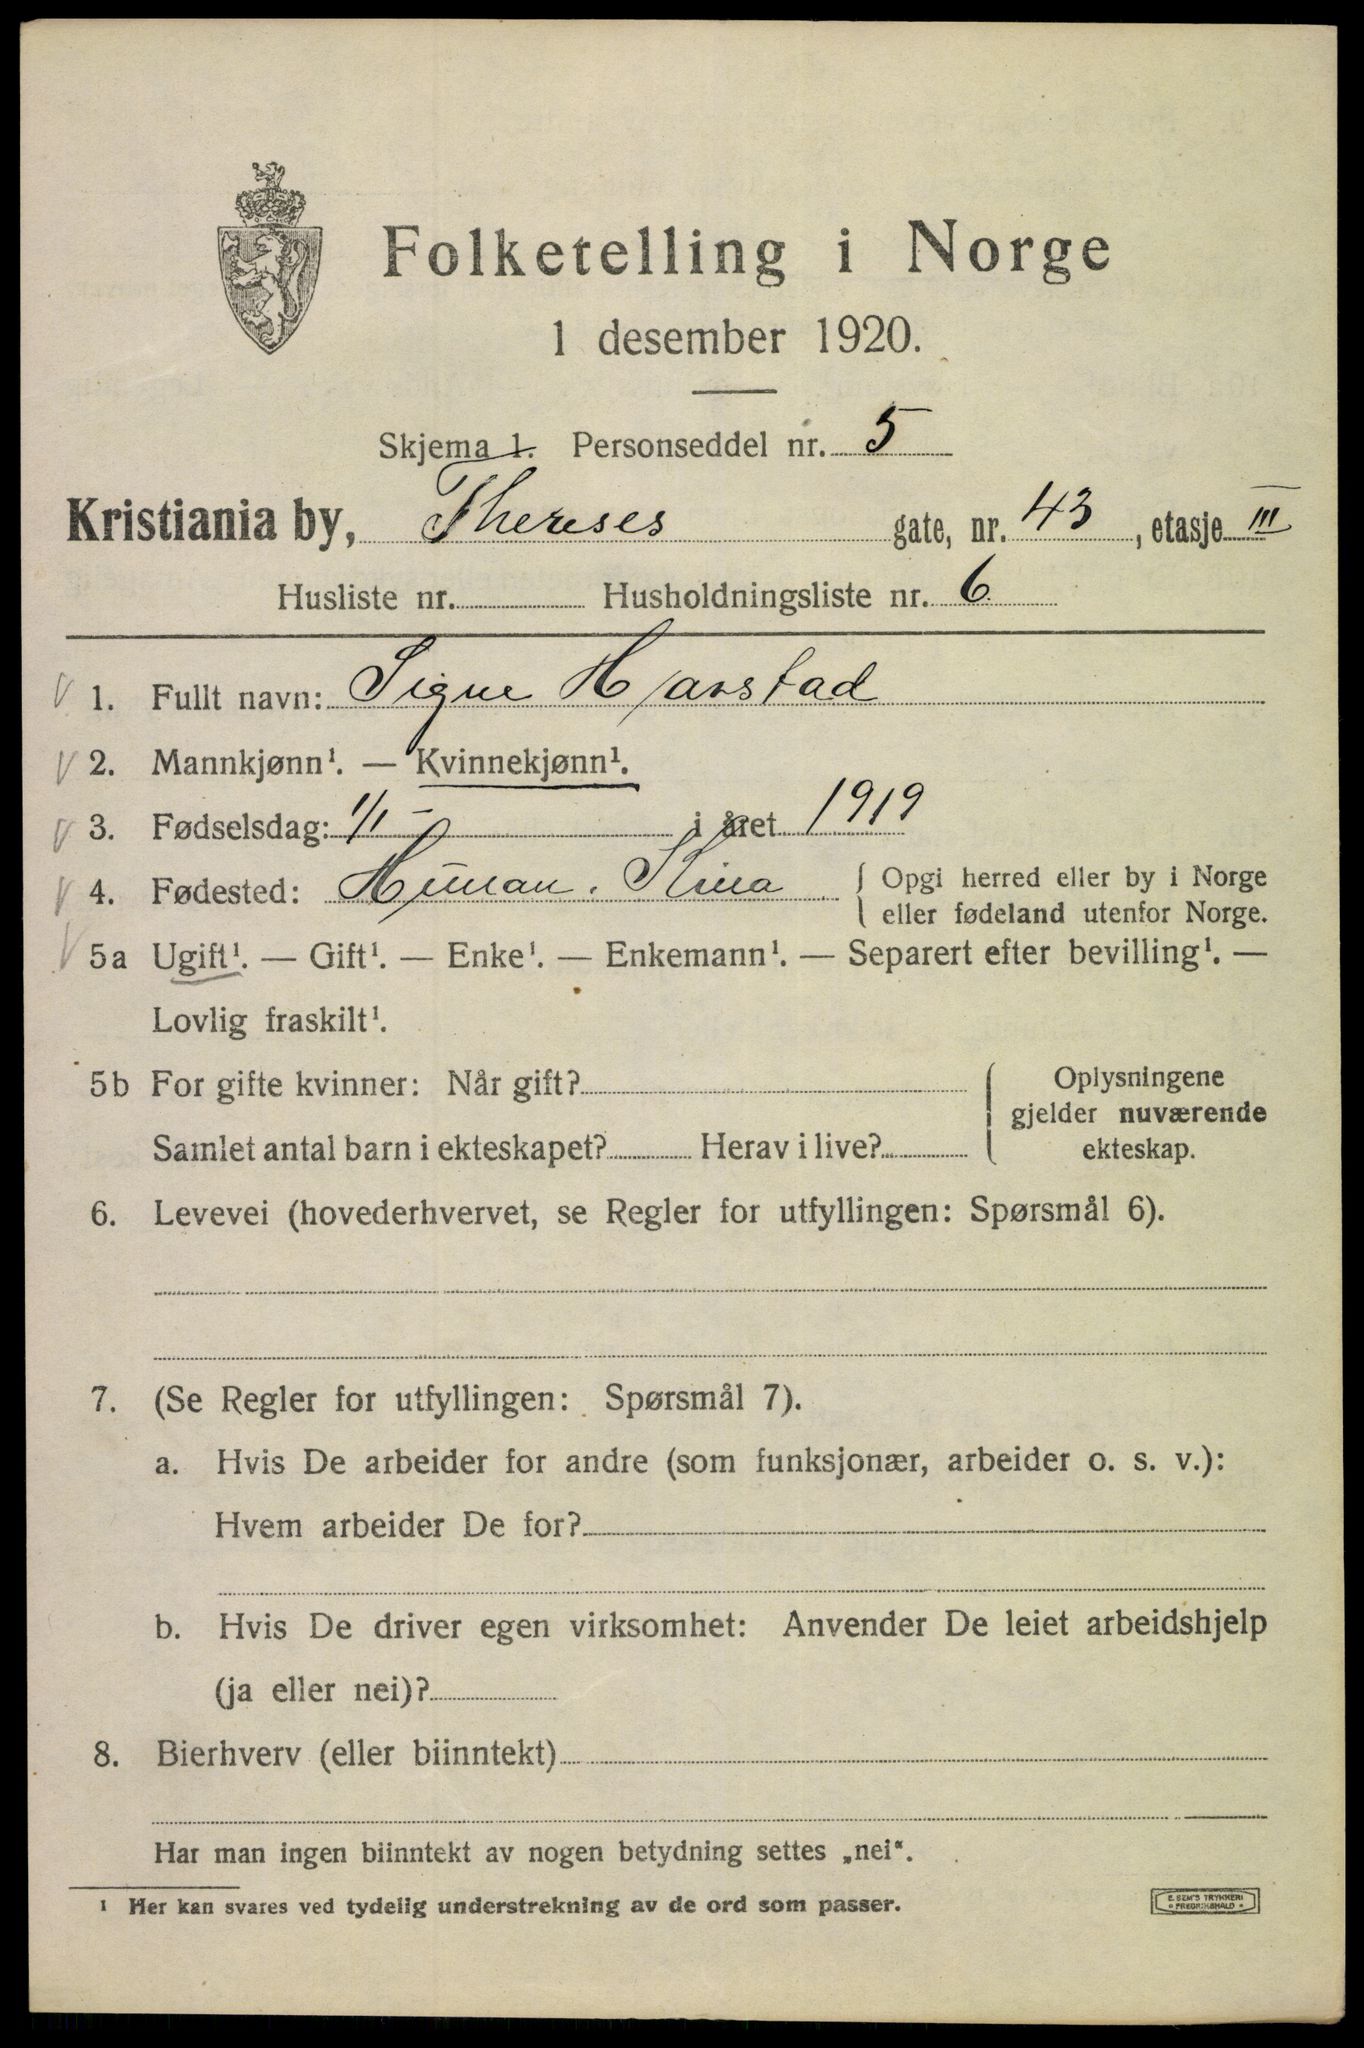 Folketelling i Norge
1 desember 1920.
Skjema 1. Personseddel nr. 5
Kristiania by, Thereses gate, nr. 43, etasje III
Husliste nr. Husholdningsliste nr. 6
1. Fullt navn: Signe Harstad
2. Mannkjønn¹. — Kvinnekjønn¹.
3. Fødselsdag: 1/1 - i året 1919
4. Fødested: Hunan. Kina { Opgi herred eller by i Norge
eller fødeland utenfor Norge.
5a Ugift¹. — Gift¹. — Enke¹. — Enkemann¹. — Separert efter bevilling¹. —
Lovlig fraskilt¹.
5b For gifte kvinner: Når gift? { Oplysningene
gjelder nuværende
Samlet antal barn i ekteskapet? Herav i live? ekteskap.
6. Levevei (hovederhvervet, se Regler for utfyllingen: Spørsmål 6).
7. (Se Regler for utfyllingen: Spørsmål 7).
a. Hvis De arbeider for andre (som funksjonær, arbeider o. s. v.):
Hvem arbeider De for?
b. Hvis De driver egen virksomhet: Anvender De leiet arbeidshjelp
(ja eller nei)?
8. Bierhverv (eller biinntekt)
Har man ingen biinntekt av nogen betydning settes „nei“.
¹ Her kan svares ved tydelig understrekning av de ord som passer.
E. SEM'S TRYKKERI
FREDRIKSHALD